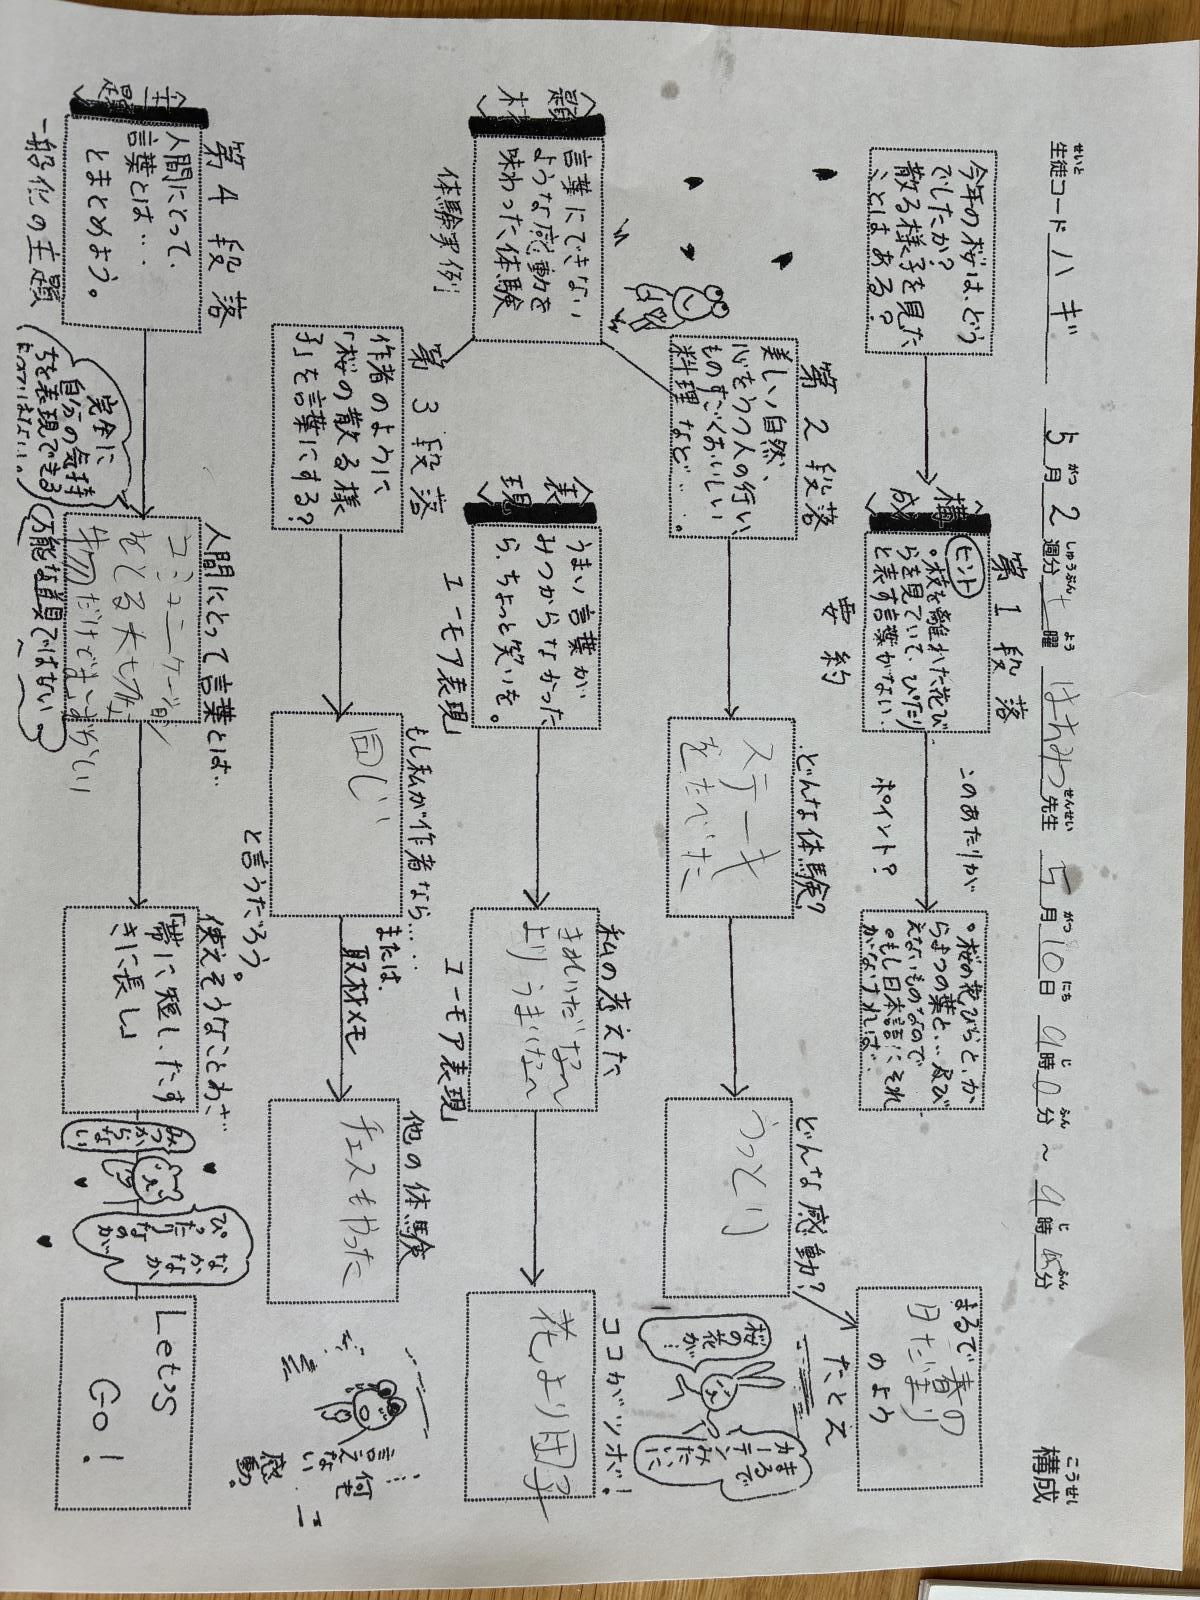 せいと
生徒コード ハギ
5月2週分 土曜 はちみつ先生 5月10日 9時0分～9時15分
構成
こうせい
今年の桜は、どう
でしたか？
散る様子を見た
ことはある？
〈構成〉
第1段落
要約
ヒント
。枝を離れた花び
らを見ていて、ぴたり
と表す言葉がない。
このあたりが
ポイント？
。桜の花びらと、か
らまつの葉と…及び
えないものなので
。もし日本語にそれ
がなければ…
まるで春の
日だまり
のよう
たとえ
〈題材〉
言葉にできない
ような感動を
味わった体験
体験実例
第2段落
美しい自然、
心をうつ人の行い、
ものすごくおいしい
料理 など…。
どんな体験？
ステーキ
をたべた
どんな感動？
うっとり
桜の花が…
まるで
カーテン
みたいに
〈表現〉
うまい言葉が
みつからなかった
ら、ちょっと笑いを。
ユーモア表現
私の考えた
ユーモア表現
きれいだな～
より うまいな～
ココがツボ！
花より団子
第3段落
作者のように
「桜の散る様
子」を言葉にする？
もし私が作者なら……
と言うだろう。
同じ
または、
取材メモ
他の体験
チェスもやった
…何も
言えない
感動。
〈主題〉
人間にとって、
言葉とは…
とまとめよう。
第4段落
一般化の主題
完全に
自分の気持
ちを表現できる
わけではない。
人間にとって言葉とは…
コミュニケーション
をとる大切な
物だけでまいぶない
万能な道具ではない。
使えそうなことわざ…
「帯に短したす
きに長し」
なかなか
ぴったりなのが
みつからない
Let's
GO!